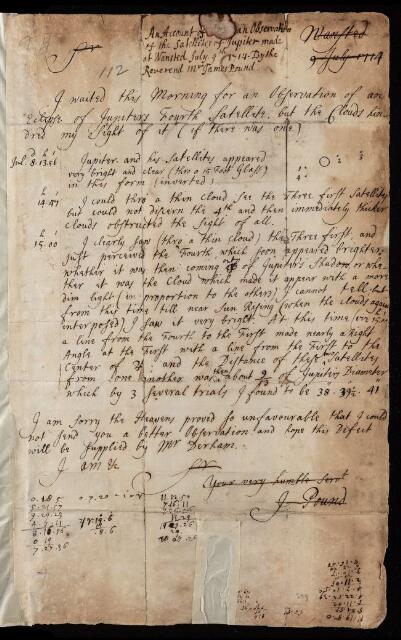 Sr
An Account of an Observation
of the Satellites of Jupiter made
at Wansted July 9th 1714. By the
Reverend Mr James Pound.
Wansted
9 July 1714
112
I waited this Morning for an Observation of an
Eclipse of Jupiters Fourth Satellite, but the Clouds hin
dred my Sight of it (if there was one)
D h '
Jul. 8. 13.56 Jupiter and his Satellites appeared
very bright and clear (thro a 15 Foot Glass)
in this form (inverted)
h '
14.47 I could thro a thin cloud see the Three first Satellites
but could not discern the 4th and then immediately thicker
Clouds obstructed the sight of all.
h '
15.00 I clearly saw (thro a thin cloud) the Three first, and
Just perceived the Fourth which soon appeared brighter,
whether it was then coming out of Jupiter's Shadow or whe
ther it was the Cloud which made it appear with a more
dim light (in proportion to the others) I cannot tell but
from this time till near Sun Rising (when the clouds again
interposed) I saw it very bright. At this time
a line from the Fourth to the First made nearly a Right
Angle at the First with a line from the First to the
Center of ♃: and the Distance of these Satellites
from one another was then about 9/13 of Jupiters Diameter
which by 3 several trials I found to be 38. 39½. 41
I am sorry the Heavens proved so unfavourable that I could
not send you a better Observation and hope this Defect
will be supplied by Mr Derham.
I am &c
Sr
Your very humble Servt
J. Pound